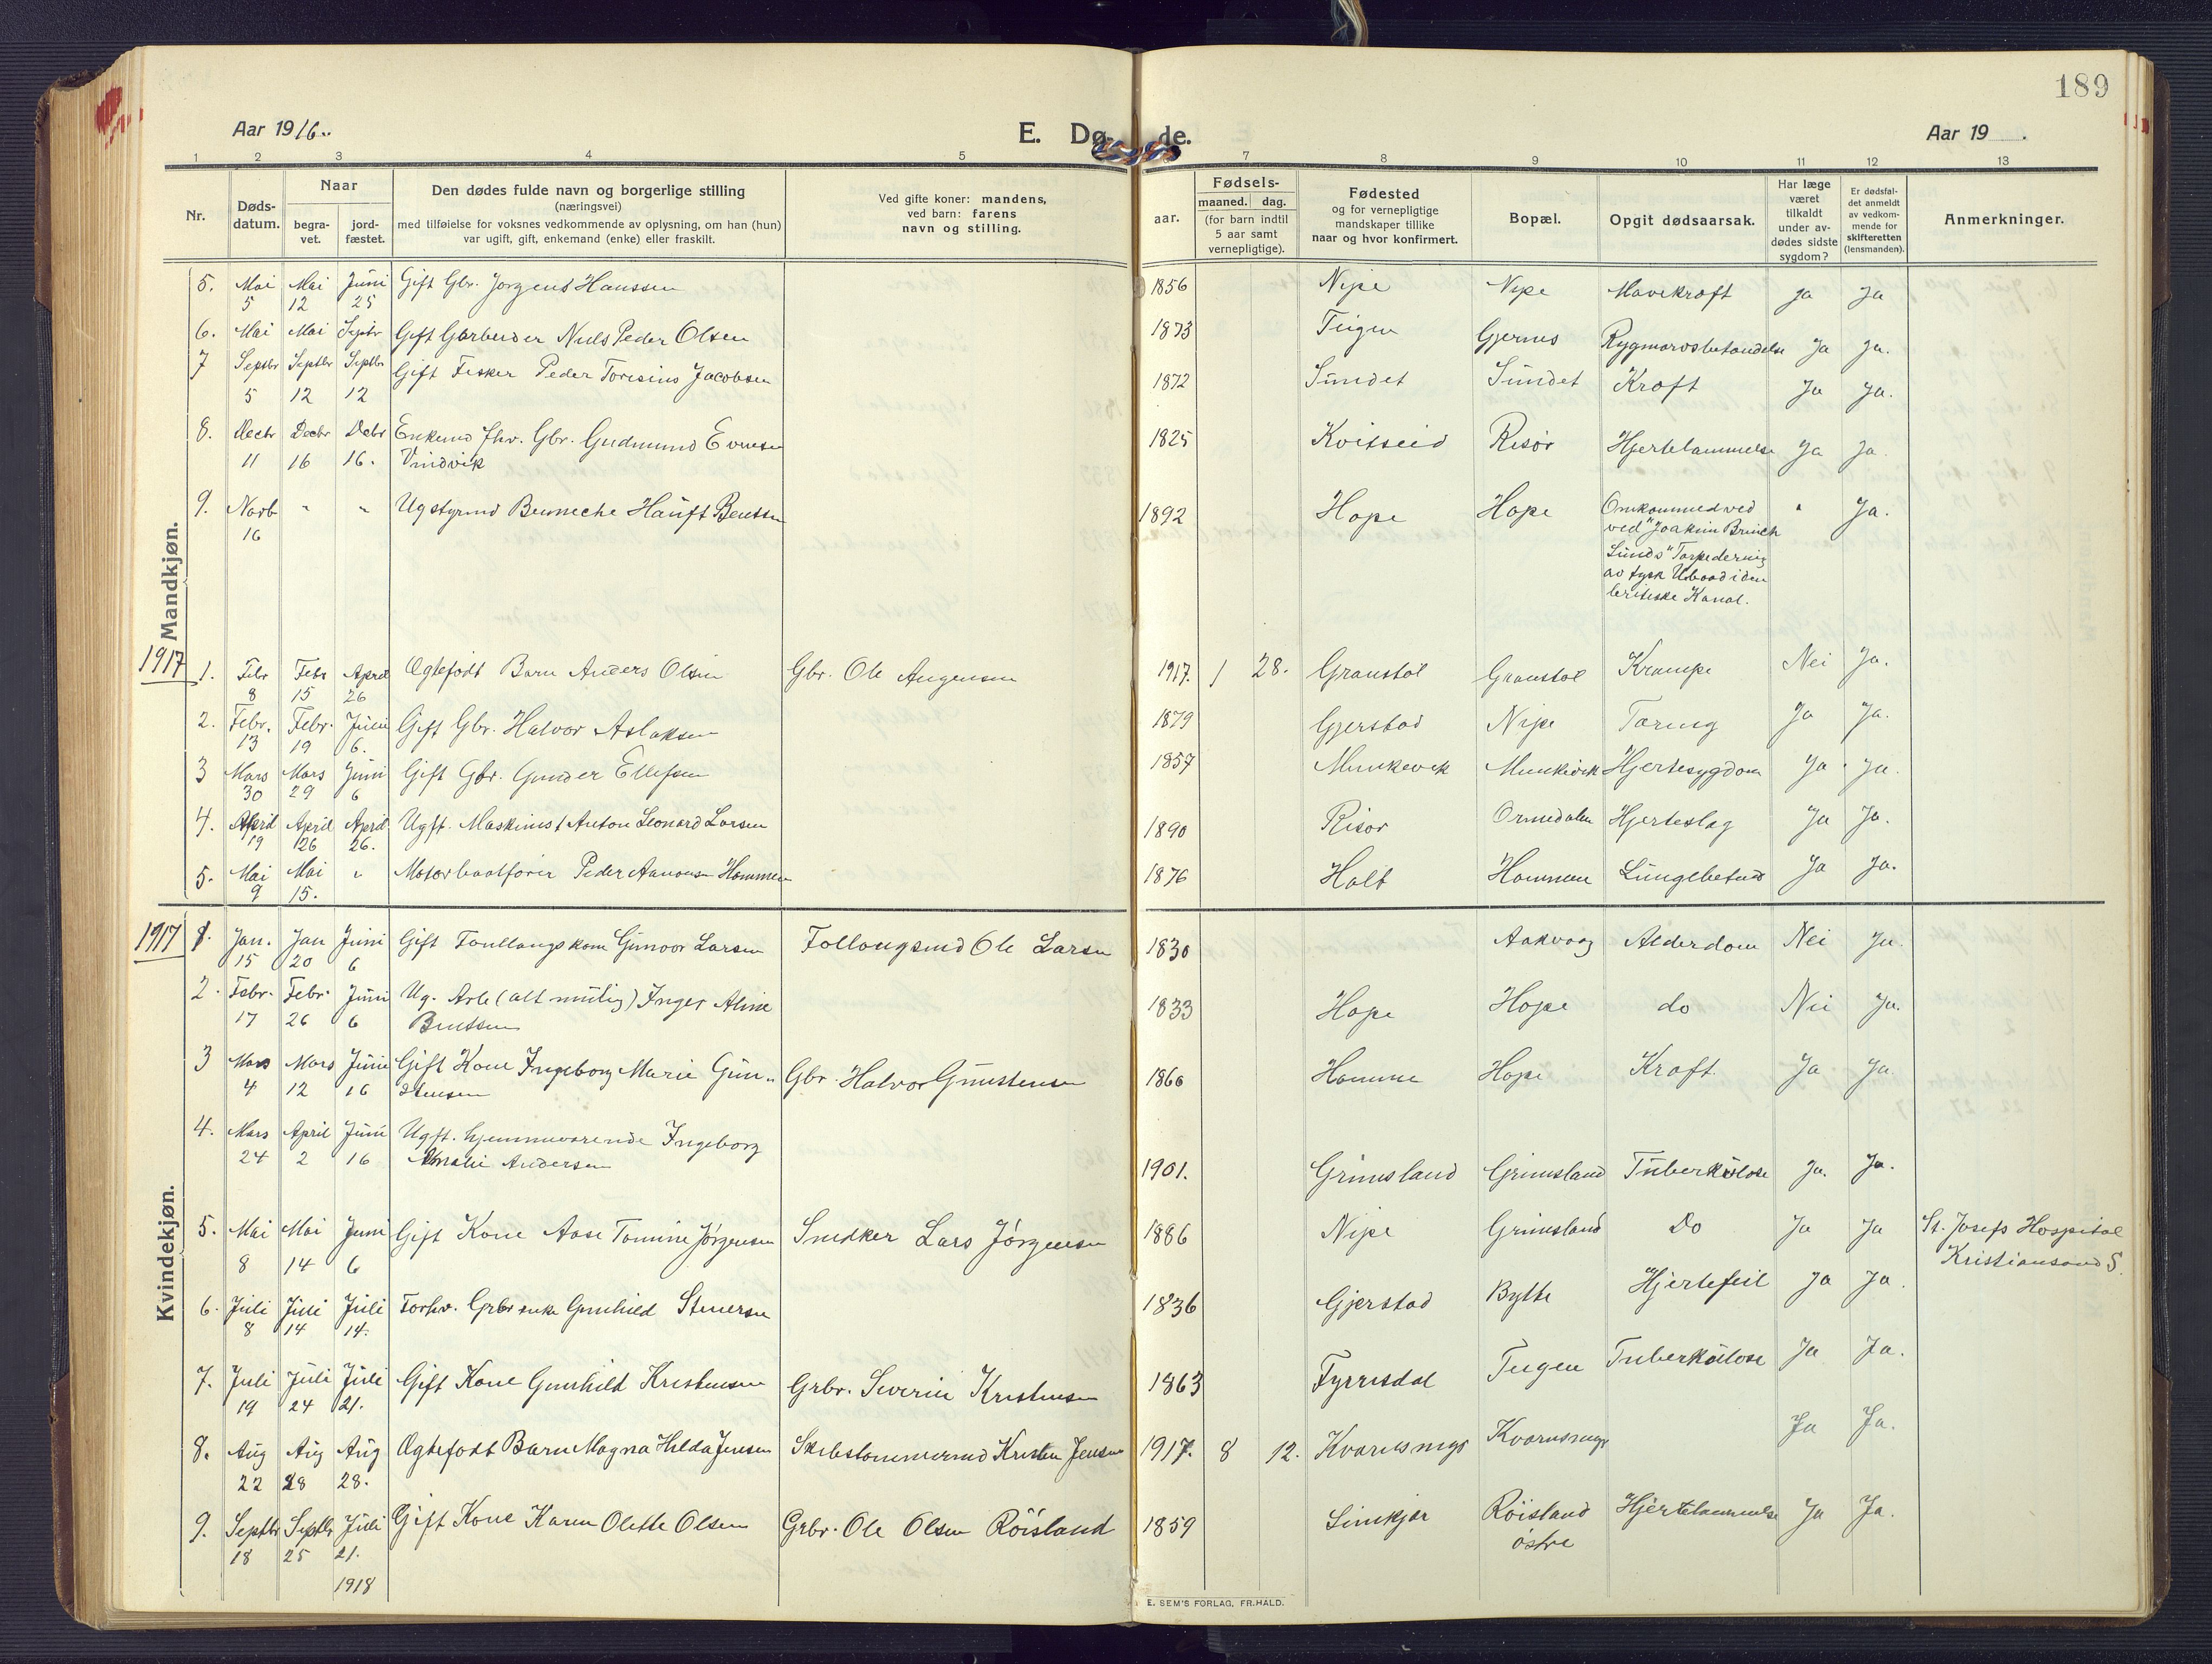 189
Aar 1916.
E. Dø de.
Aar 19
1 2 3 4 5 7 8 9 10 11 12 13
Nr.
Døds-
datum.
Naar
begra-
vet.
jord-
fæstet.
Den dødes fulde navn og borgerlige stilling
(næringsvei)
med tilføielse for voksnes vedkommende av oplysning, om han (hun)
var ugift, gift, enkemand (enke) eller fraskilt.
Ved gifte koner: mandens,
ved barn: farens
navn og stilling.
aar.
Fødsels-
maaned. dag.
(for barn indtil
5 aar samt
vernepligtige).
Fødested
og for vernepligtige
mandskaper tillike
naar og hvor konfirmert.
Bopæl.
Opgit dødsaarsak.
Har læge
været
tilkaldt
under av-
dødes sidste
sygdom?
Er dødsfal-
det anmeldt
av vedkom-
mende for
skifteretten
(lensmanden).
Anmerkninger.
Mandkjøn.
5. Mai Mai Juni Gift Gbr. Jørgens Hanssen 1856 Nipe Nipe Mavekræft Ja Ja
5 12 25
6. Mai Mai Septbr Gift Peder Olsen 1873 Gjernes Ja Ja.
7 Septbr Septbr Septbr Gift Fisker Peder Toresius Jacobsen 1872 Sundet Sundet Kræft Ja Ja.
5 12 12
8. Decbr Decbr Decbr Gbr. Gudmund Evensen 1825 Kvitseid Risør Hjertelammelse Ja Ja.
11 16 16. Vindvik
9. Novb " " Ug styrmd Hauft Bentsen 1892 Hope Hope Omkommed ved " Ja.
16 ved "Joakim Brinch
Lunds" Torpedering
av tysk Ubaad i den
britiske Kanal.
1917
1. Febr Febr April Ægtefødt Barn Anders Olsen Gbr. Ole Augensen 1917. 1 28. Granstøl Granstøl Krampe Nei Ja.
8 15 26
2. Febr. Febr. Juni Gift Gbr. Halvor Aslaksen 1879 Gjerstad Nipe Tæring Ja Ja.
13 19 6.
3 Mars Mars Juni Gift Gbr. Gunder Ellefsen 1857 Munkevik Munkevik Hjertesygdom Ja Ja.
30 29 6
4. April April April Ugft. Maskinist Anton Leonard Larsen 1890 Risør Ormedalen Hjerteslag Ja Ja.
19 26 26.
5. Mai Mai " Motorbaatfører Peder Aanonsen Hommen 1876 Holt Hommen Lungebetænd Ja Ja.
9 15.
Kvindekjøn.
1917
1. Jan. Jan Juni Gift Gunvor Larsen Ole Larsen 1830 Aakvaag Alderdom Nei Ja.
15 20 6
2. Febr. Febr. Juni Ug. Arb (alt mulig) Inger Aline 1833 Hope Hope do Nei Ja.
17 26 6 Bentsen
3 Mars Mars Juni Gift Kone Ingeborg Marie Gun- Gbr. Halvor Gunstensen 1860 Homme Hope Kræft Ja Ja.
4 12 16 stensen
4. Mars April Juni Ugft. hjemmeværende Ingeborg
24 2 16 Amalie Andersen 1901. Grimsland Grimsland Tuberkulose Ja. Ja.
5. Mai Mai Juni Gift Kone Aase Tomine Jørgensen Snedker Lars Jørgensen 1886 Nipe Grimsland Do Ja Ja St. Josefs Hospital
8 14 6 Kristiansand S.
6. Juli Juli Juli Forhv. Grbr enke Gunhild 1836 Gjerstad Bytte Hjertefeil Ja Ja.
8 14 14.
7. Juli Juli Juli Gift Kone Gunhild Kristensen Grbr. Severin Kristensen 1863 Fyrresdal Teigen Tuberkulose Ja Ja.
19 24 21.
8. Aug Aug Aug Ægtefødt Barn Magna Hilda Jensen Skibstømmermd Kristen Jensen 1917. 8 12. Ja Ja.
22 28 28.
9. Septbr Septbr Juli Gift Kone Karen Olette Olsen Grbr. Ole Olsen Røisland 1859 Røisland Hjertelammelse Ja Ja.
18 25 21. østre
1918
E. SEM'S FORLAG, FR.HALD.